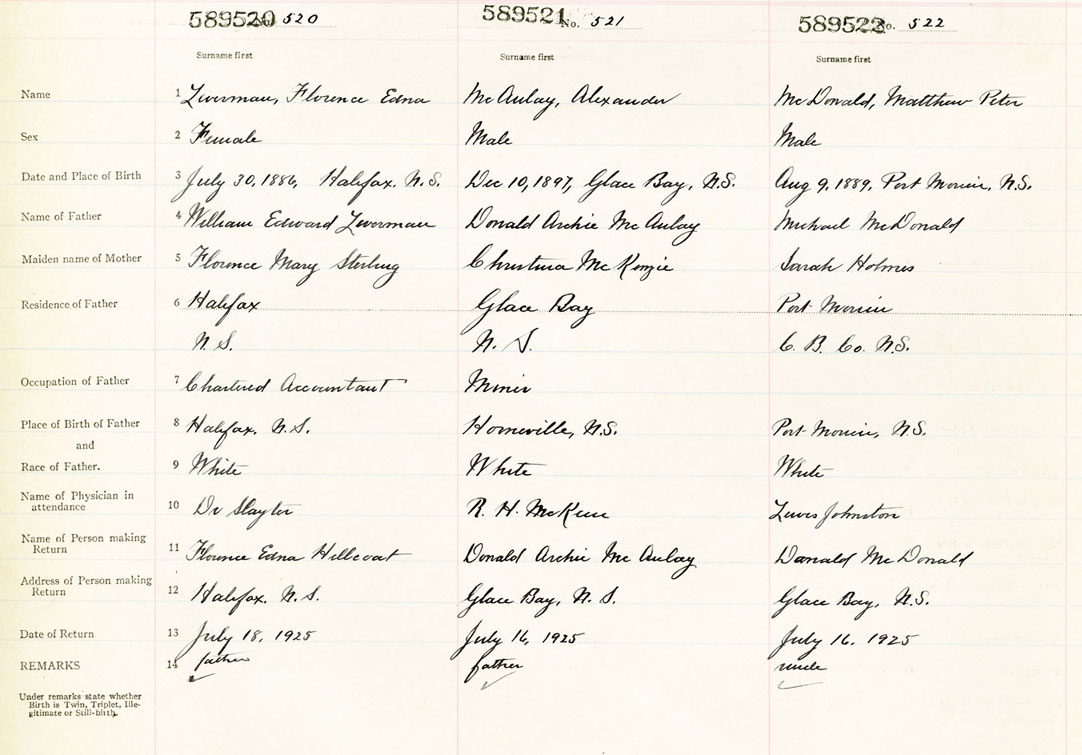 589520 No. 520 589521 No. 521 589522 No. 522
Surname first Surname first Surname first
Name 1 Zwerman, Florence Edna McAulay, Alexander McDonald, Matthew Peter
Sex 2 Female Male Male
Date and Place of Birth 3 July 30, 1886, Halifax, N.S. Dec 10, 1897, Glace Bay, N.S. Aug 9, 1889, Port Morien, N.S.
Name of Father 4 William Edward Zwerman Donald Archie McAulay Michael McDonald
Maiden name of Mother 5 Florence Mary Sterling Christina McKenzie Sarah Holmes
Residence of Father 6 Halifax Glace Bay Port Morien
N.S. N. S. C. B. Co. N.S.
Occupation of Father 7 Chartered Accountant Miner
Place of Birth of Father 8 Halifax, N.S. Homeville, N.S. Port Morien, N.S.
and
Race of Father. 9 White White White
Name of Physician in
attendance 10 Dr Slayter R. H. McKeen Lewis Johnston
Name of Person making
Return 11 Florence Edna Hillcoat Donald Archie McAulay Danald McDonald
Address of Person making
Return 12 Halifax, N.S. Glace Bay, N.S. Glace Bay, N.S.
Date of Return 13 July 18, 1925 July 16, 1925 July 16. 1925
REMARKS 14 father father uncle
Under remarks state whether
Birth is Twin, Triplet, Ille-
gitimate or Still-birth.